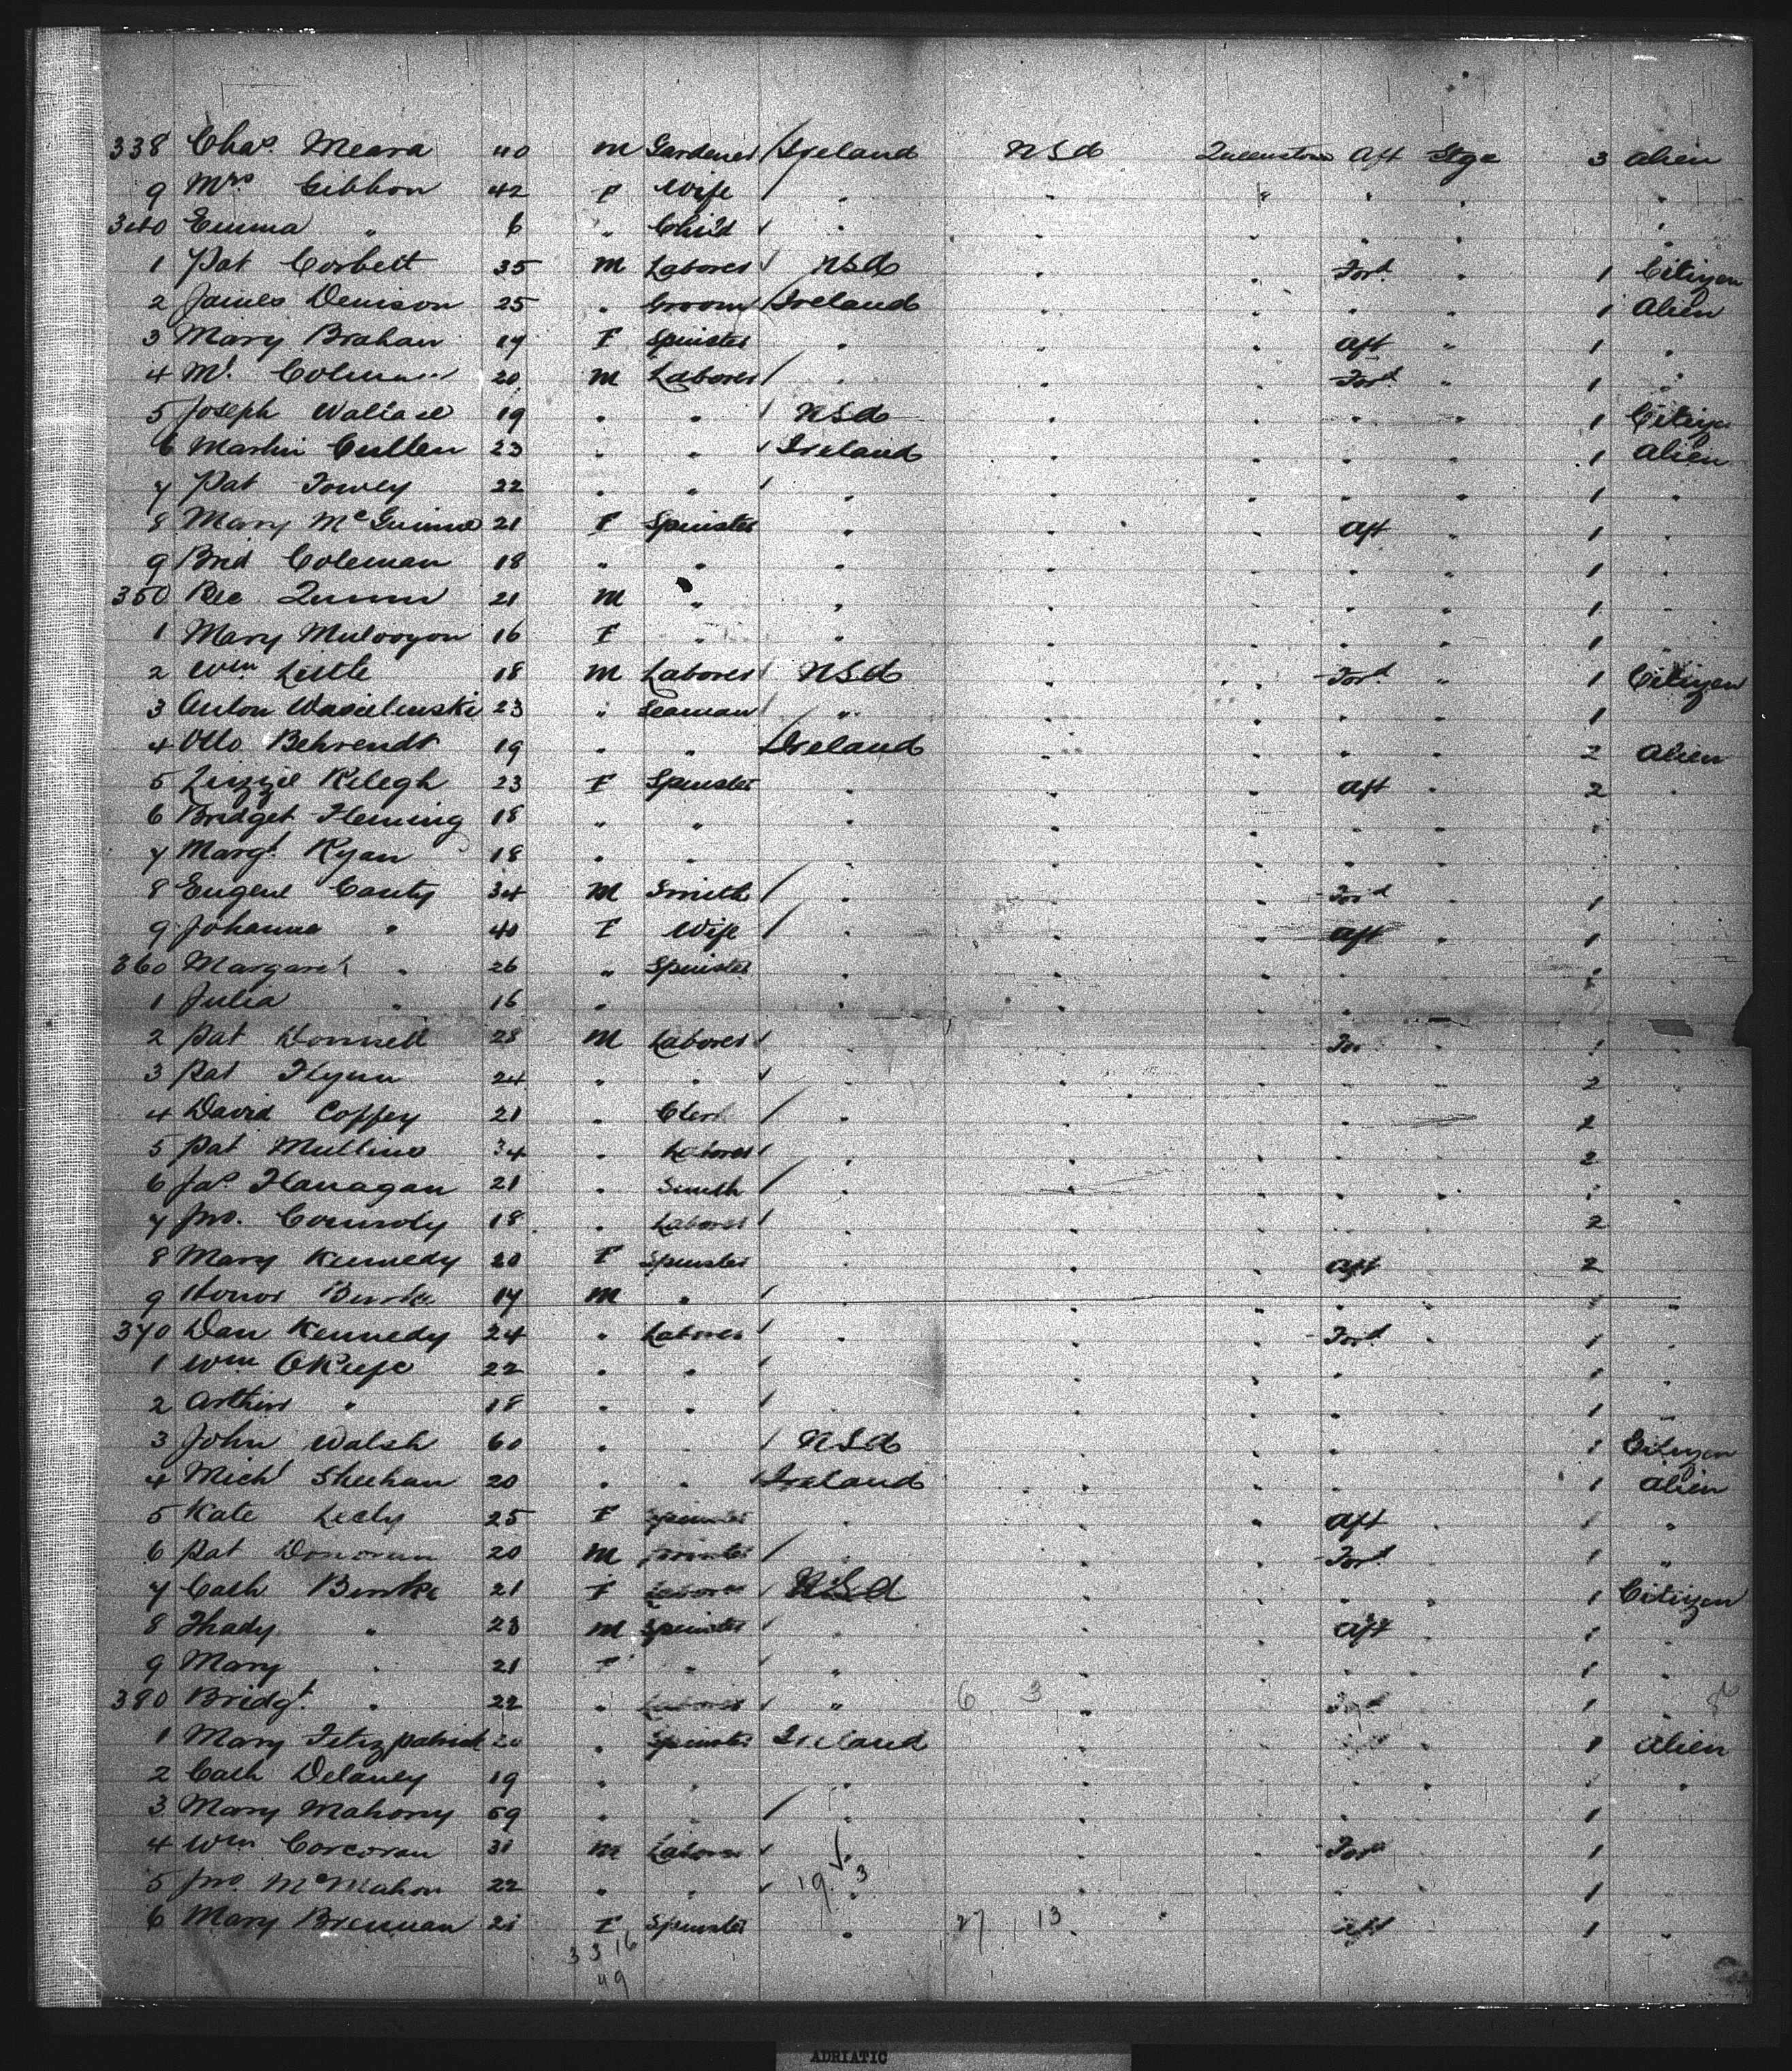 338 Chas. Meara 40 m Gardener Ireland USA Queenstown Aft Stge 3 Alien
9 Mrs Gibbon 42 F Wife " " " " "
340 Emma " 6 " Child " " " " " "
1 Pat Corbett 35 m Laborer USA " " Ford " 1 Citizen
2 James Denison 25 " Groom Ireland " " " " 1 Alien
3 Mary Brahan 19 F Spinster " " " Aft " 1 "
4 Ml. Colman 20 m Laborer " " " Ford " 1 "
5 Joseph Wallace 19 " " USA " " " " 1 Citizen
6 Martin Cullen 23 " " Ireland " " " " 1 Alien
7 Pat Towey 22 " " " " " " " 1 "
8 Mary McGuinne 21 F Spinster " " " Aft " 1 "
9 Brid Coleman 18 " " " " " " " 1 "
350 Bee Quinn 21 m " " " " " " 1 "
1 Mary Mulooyon 16 F " " " " " " 1 "
2 Wm Little 18 m Laborer USA " " Ford " 1 Citizen
3 Anton Wasielewski 23 " Seaman " " " " " 1
4 Otto Behrendt 19 " " Ireland " " " " 2 Alien
5 Lizzie Kilegh 23 F Spinster " " " Aft " 2 "
6 Bridget Fleming 18 " " " " " " " "
7 Margt. Ryan 18 " " " " " " " "
8 Eugene Canty 34 m Smith " " " Ford " 1 "
9 Johanna " 40 F Wife " " " Aft " 1 "
360 Margaret " 26 " Spinster " " " " " 1
1 Julia " 16 " " " " "
2 Pat Donnell 28 m Laborer " " " For " 1 "
3 Pat Flynn 24 " " " " " " " 2 "
4 David Coffey 21 " Clerk " " " " 2
5 Pat Mullins 34 " Laborer " " " " " 2
6 Jas Flanagan 21 " Smith " " " " " 1 "
7 Jno. Connoly 18 " Laborer " " " " 2
8 Mary Kennedy 20 F Spinster " " " Aft " 2
9 Honor Burke 17 m " " " " " " 1 "
370 Dan Kennedy 24 " Laborer " " " Ford " 1 "
1 Wm OKeefe 22 " " " " " " 1 "
2 Arthur " 18 " " " " " 1 "
3 John Walsh 60 " " USA " " " 1 Citizen
4 Michl Sheehan 20 " " Ireland " " " 1 Alien
5 Kate Leely 25 F Spinster " " " Aft " 1 "
6 Pat Donovan 20 m " " " Ford " 1 "
7 Cath Burke 21 F Laborer USA " " " " 1 Citizen
8 Thady " 23 m Spinster " " " Aft " 1 "
9 Mary " 21 F " " " " " " 1 "
380 Bridgt. " 22 " Laborer " 6 3 " " 1
1 Mary Fitzpatrick 20 " Spinster Ireland " " " 1 Alien
2 Cath Delaney 19 " " " " " " " 1 "
3 Mary Mahony 59 " " " " " " 1
4 Wm Corcoran 31 m Laborer " " " Ford 1
5 Jno. McMahon 22 " " 19 3 " " " 1
6 Mary Brennan 21 F Spinster " 27 13 " Aft 1 "
33 16
49
ADRIATIC